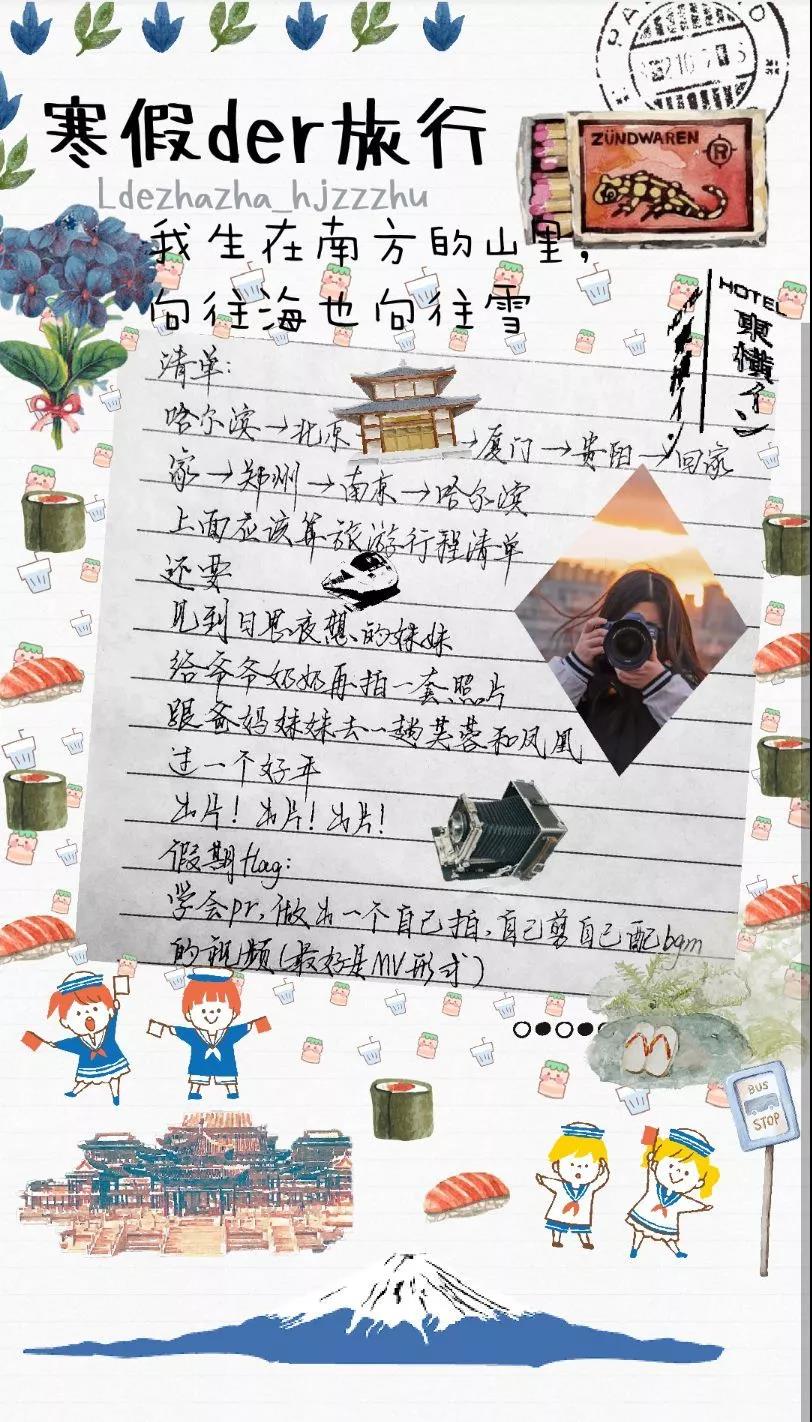 寒假der旅行
Ldezhazha_hjzzzhu
ZÜNDWAREN
R
我生在南方的山里,
向往海也向往雪
HOTEL
東横イン
清单:
哈尔滨→北京→厦门→贵阳→回家
家→郑州→南京→哈尔滨
上面应该算旅游行程清单
还要
见到日思夜想的妹妹
给爷爷奶奶再拍一套照片
跟爸妈妹妹去一趟芙蓉和凤凰
过一个好年
出片!出片!出片!
假期flag:
学会pr,做出一个自己拍,自己剪自己配bgm
的视频(最好是MV形式)
BUS
STOP